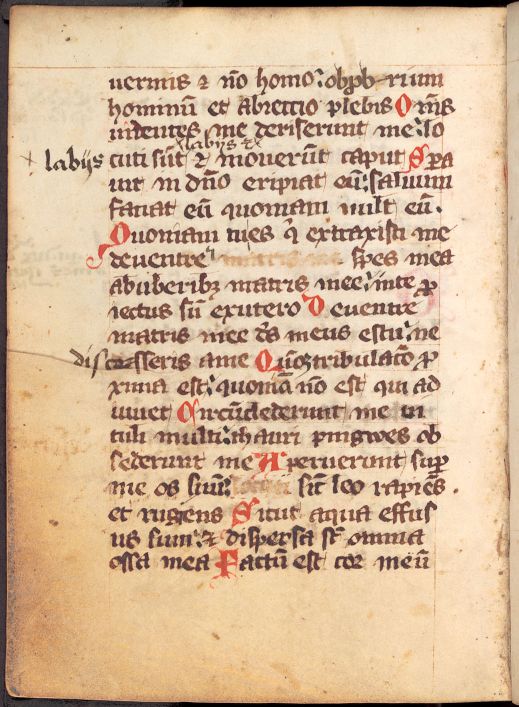 uermis ⁊ nō homo: obꝓb-rium
hominū et abiectio plebis Om̄s
uidentes me deriserunt me: lo
labijs ⁊
+ labijs
cuti sūt ⁊ mouerūt caput Spa
uit in dn̄o eripiat eū: saluum
faciat eū quoniam uult eū.
Quoniam tu es q̄ extraxisti me
de uentre spes mea
ab uberibꝫ matris mee: in te ꝓ
iectus sū ex utero De uentre
matris mee ds̄ meus es tu: ne
discesseris a me Qm̄ tribulaco̅ ꝓ
xima est: quoniā nō est qui ad
iuuet Circūdederunt me ui
tuli multi: thauri pingwes ob
sederunt me Aperuerunt suꝑ
me os suū: sic̄ leo rapiēs.
et rugiens Sicut aqua effus
us sum: ⁊ dispersa st̄ omnia
ossa mea Factū est cor meū